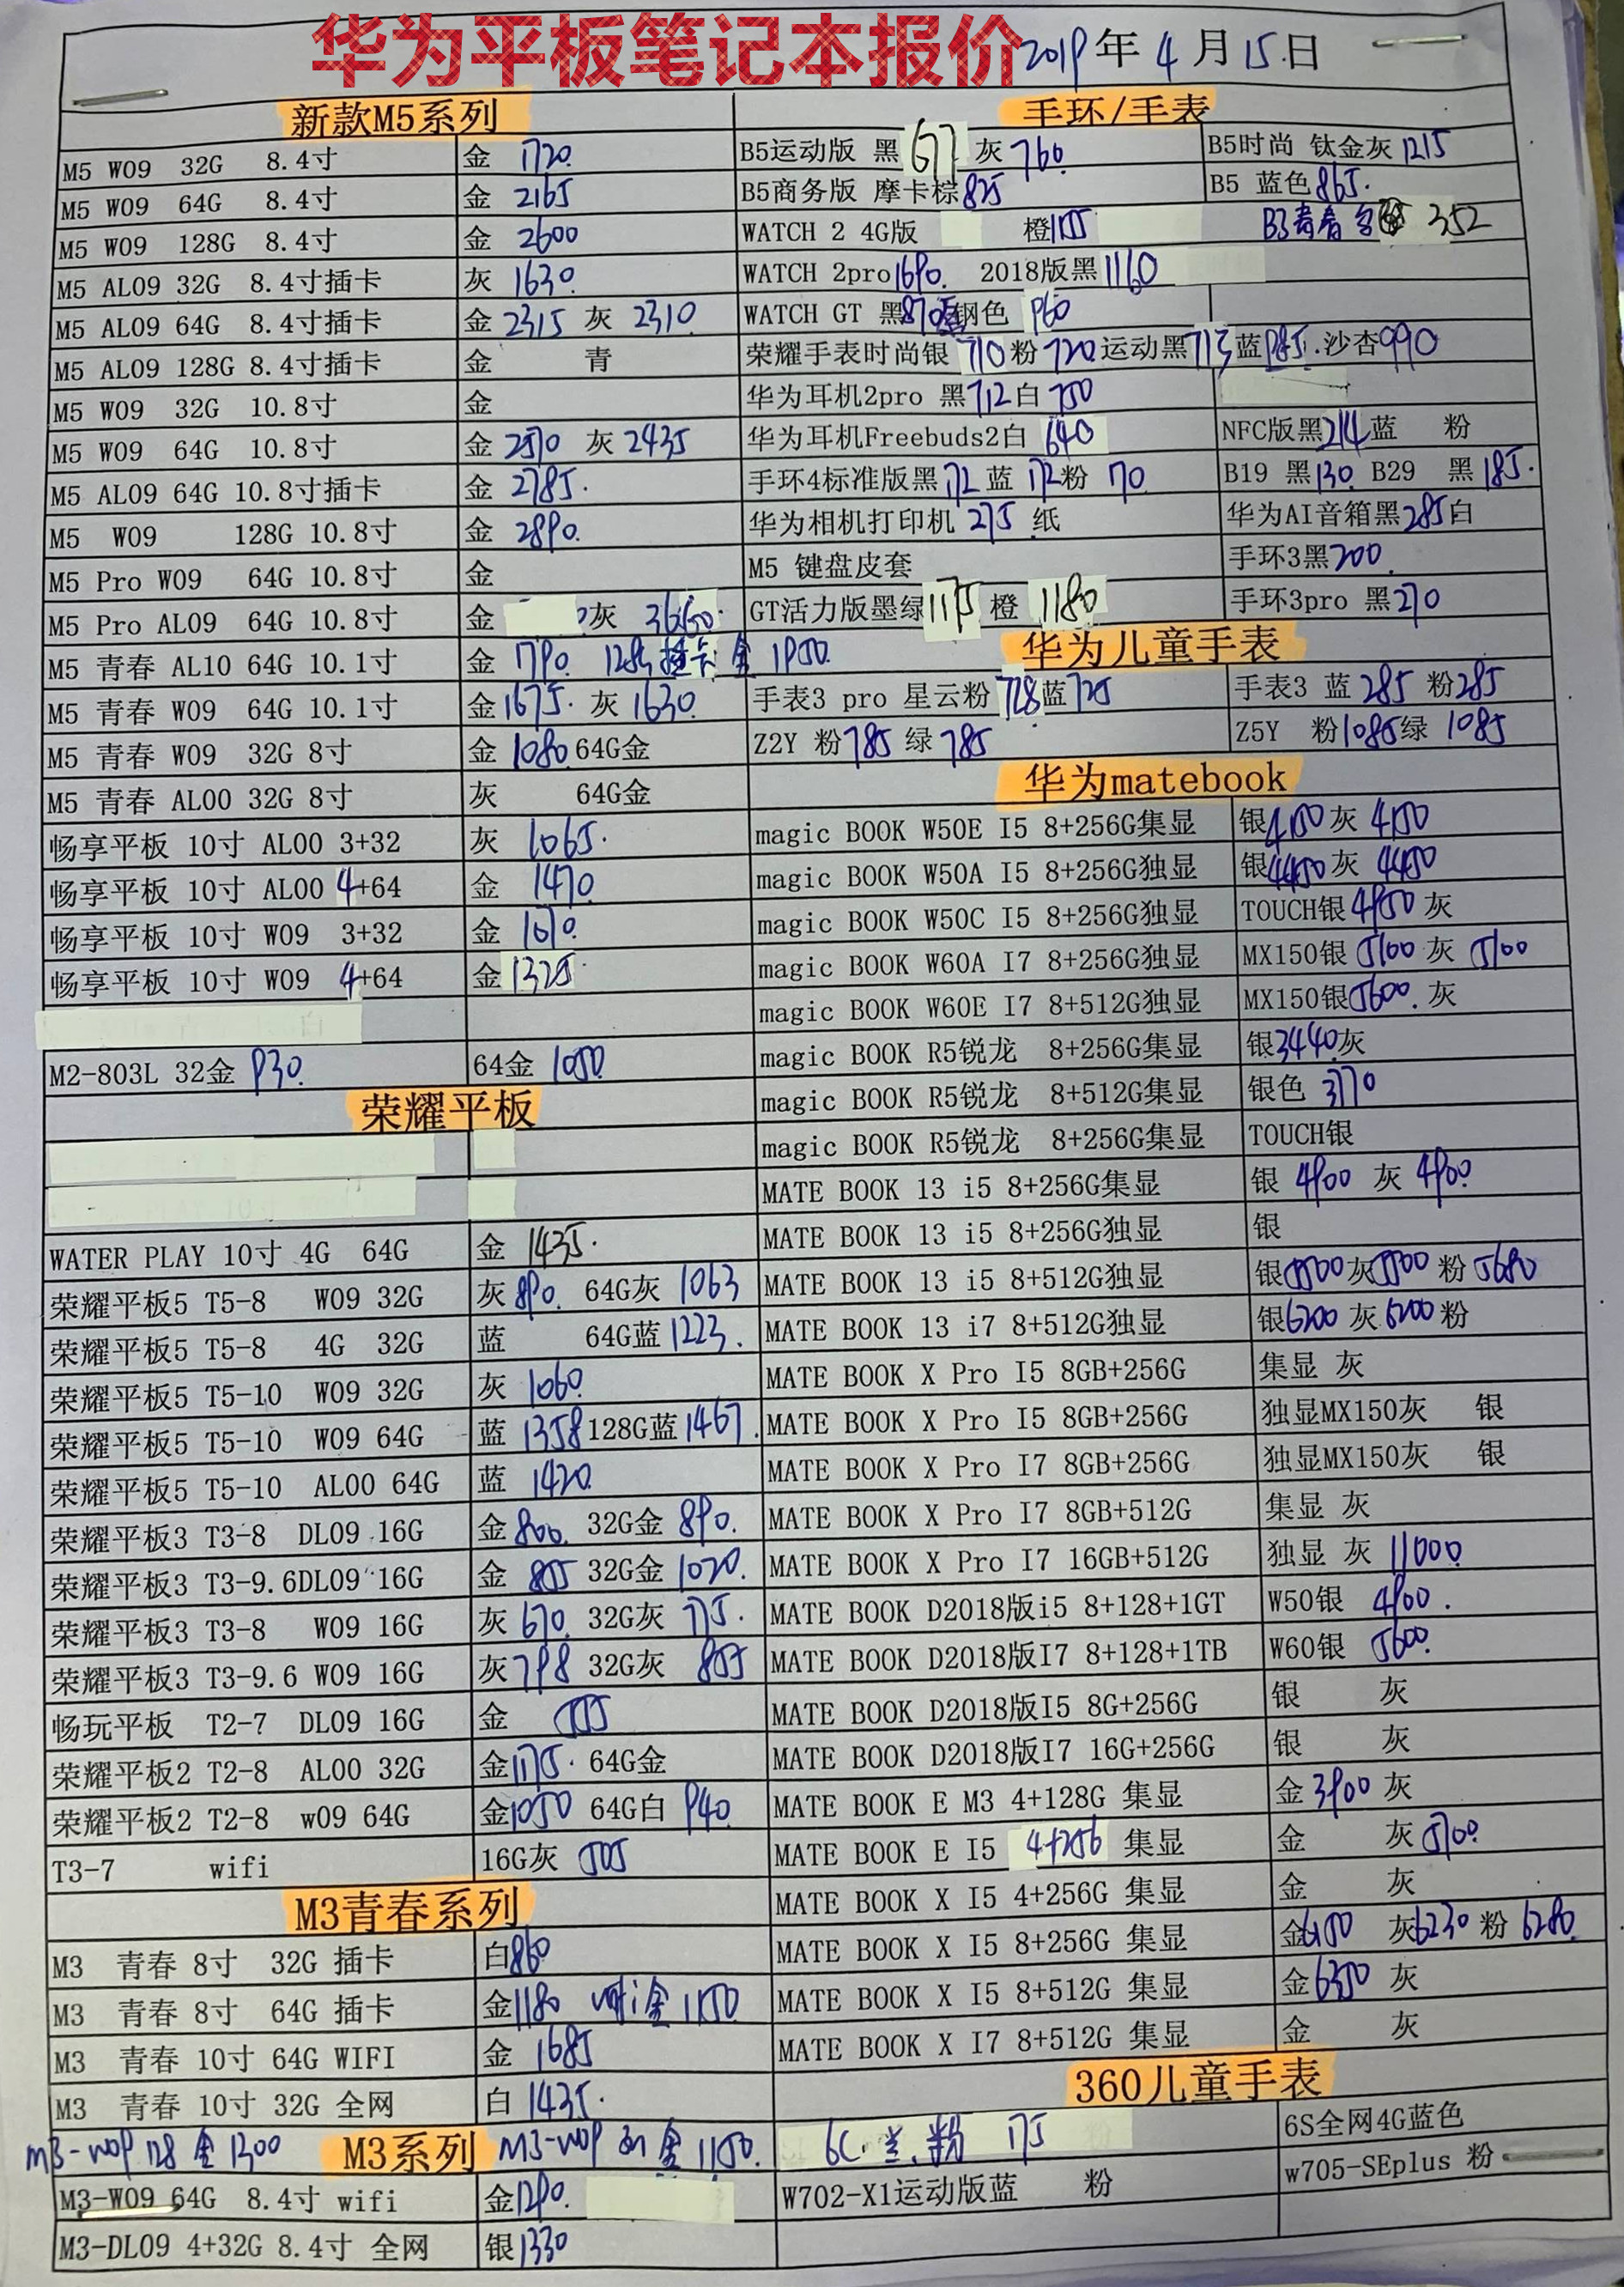 华为平板笔记本报价 2019年4月15日
新款M5系列
M5 W09 32G 8.4寸 金 1720
M5 W09 64G 8.4寸 金 2165
M5 W09 128G 8.4寸 金 2600
M5 AL09 32G 8.4寸插卡 灰 1630
M5 AL09 64G 8.4寸插卡 金 2315 灰 2310
M5 AL09 128G 8.4寸插卡 金 青
M5 W09 32G 10.8寸 金
M5 W09 64G 10.8寸 金 2570 灰 2435
M5 AL09 64G 10.8寸插卡 金 2785.
M5 W09 128G 10.8寸 金 2890.
M5 Pro W09 64G 10.8寸 金
M5 Pro AL09 64G 10.8寸 金 灰 3660.
M5 青春 AL10 64G 10.1寸 金 1790. 128G 插卡 金 1950.
M5 青春 W09 64G 10.1寸 金 1675. 灰 1630.
M5 青春 W09 32G 8寸 金 1080 64G金
M5 青春 AL00 32G 8寸 灰 64G金
畅享平板 10寸 AL00 3+32 灰 1065.
畅享平板 10寸 AL00 4+64 金 1470
畅享平板 10寸 W09 3+32 金 1070.
畅享平板 10寸 W09 4+64 金 1325
M2-803L 32金 930. 64金 1050.
荣耀平板
WATER PLAY 10寸 4G 64G 金 1435.
荣耀平板5 T5-8 W09 32G 灰 890. 64G灰 1063
荣耀平板5 T5-8 4G 32G 蓝 64G蓝 1223.
荣耀平板5 T5-10 W09 32G 灰 1060.
荣耀平板5 T5-10 W09 64G 蓝 1358 128G蓝 1467.
荣耀平板5 T5-10 AL00 64G 蓝 1420.
荣耀平板3 T3-8 DL09 16G 金 800. 32G金 890.
荣耀平板3 T3-9.6DL09 16G 金 855 32G金 1020.
荣耀平板3 T3-8 W09 16G 灰 670. 32G灰 775.
荣耀平板3 T3-9.6 W09 16G 灰 798 32G灰 855
畅玩平板 T2-7 DL09 16G 金 555
荣耀平板2 T2-8 AL00 32G 金 1175. 64G金
荣耀平板2 T2-8 w09 64G 金 1050 64G白 940.
T3-7 wifi 16G灰 505
M3青春系列
M3 青春 8寸 32G 插卡 白 860
M3 青春 8寸 64G 插卡 金 1180 wifi金 1150
M3 青春 10寸 64G WIFI 金 1685
M3 青春 10寸 32G 全网 白 1435.
M3-W09 128 金 1300 M3系列 M3-W09 金 1150.
M3-W09 64G 8.4寸 wifi 金 1290.
M3-DL09 4+32G 8.4寸 全网 银 1330
手环/手表
B5运动版 黑 677 灰 760. B5时尚 钛金灰 1215
B5商务版 摩卡棕 825 B5 蓝色 865.
WATCH 2 4G版 橙 1155 B3青春 352
WATCH 2pro 1690. 2018版黑 1160
WATCH GT 黑 870 钢色 960
荣耀手表时尚银 710 粉 720 运动黑 713 蓝 985. 沙杏 990
华为耳机2pro 黑 712 白 750
华为耳机Freebuds2白 640 NFC版黑 214 蓝 粉
手环4标准版黑 172 蓝 172 粉 170. B19 黑 130. B29 黑 185.
华为相机打印机 275 纸 华为AI音箱黑 285 白
M5 键盘皮套 手环3黑 200.
GT活力版墨绿 1175 橙 1180 手环3pro 黑 270
华为儿童手表
手表3 pro 星云粉 728 蓝 725 手表3 蓝 285 粉 285
Z2Y 粉 785 绿 785 Z5Y 粉 1085 绿 1085
华为matebook
magic BOOK W50E I5 8+256G集显 银 4150 灰 4150
magic BOOK W50A I5 8+256G独显 银 4450 灰 4450
magic BOOK W50C I5 8+256G独显 TOUCH银 4950 灰
magic BOOK W60A I7 8+256G独显 MX150银 5100 灰 5100
magic BOOK W60E I7 8+512G独显 MX150银 5600. 灰
magic BOOK R5锐龙 8+256G集显 银 3440 灰
magic BOOK R5锐龙 8+512G集显 银色 3770
magic BOOK R5锐龙 8+256G集显 TOUCH银
MATE BOOK 13 i5 8+256G集显 银 4900 灰 4900
MATE BOOK 13 i5 8+256G独显 银
MATE BOOK 13 i5 8+512G独显 银 5500 灰 5500 粉 5680
MATE BOOK 13 i7 8+512G独显 银 6200 灰 6200 粉
MATE BOOK X Pro I5 8GB+256G 集显 灰
MATE BOOK X Pro I5 8GB+256G 独显MX150灰 银
MATE BOOK X Pro I7 8GB+256G 独显MX150灰 银
MATE BOOK X Pro I7 8GB+512G 集显 灰
MATE BOOK X Pro I7 16GB+512G 独显 灰 11000
MATE BOOK D2018版i5 8+128+1GT W50银 4900.
MATE BOOK D2018版I7 8+128+1TB W60银 5600.
MATE BOOK D2018版I5 8G+256G 银 灰
MATE BOOK D2018版I7 16G+256G 银 灰
MATE BOOK E M3 4+128G 集显 金 3900 灰
MATE BOOK E I5 4+256 集显 金 灰 5100.
MATE BOOK X I5 4+256G 集显 金 灰
MATE BOOK X I5 8+256G 集显 金 6150 灰 6230 粉 6280.
MATE BOOK X I5 8+512G 集显 金 6350 灰
MATE BOOK X I7 8+512G 集显 金 灰
360儿童手表
6C 兰. 粉 175 6S全网4G蓝色
W702-X1运动版蓝 粉 w705-SEplus 粉